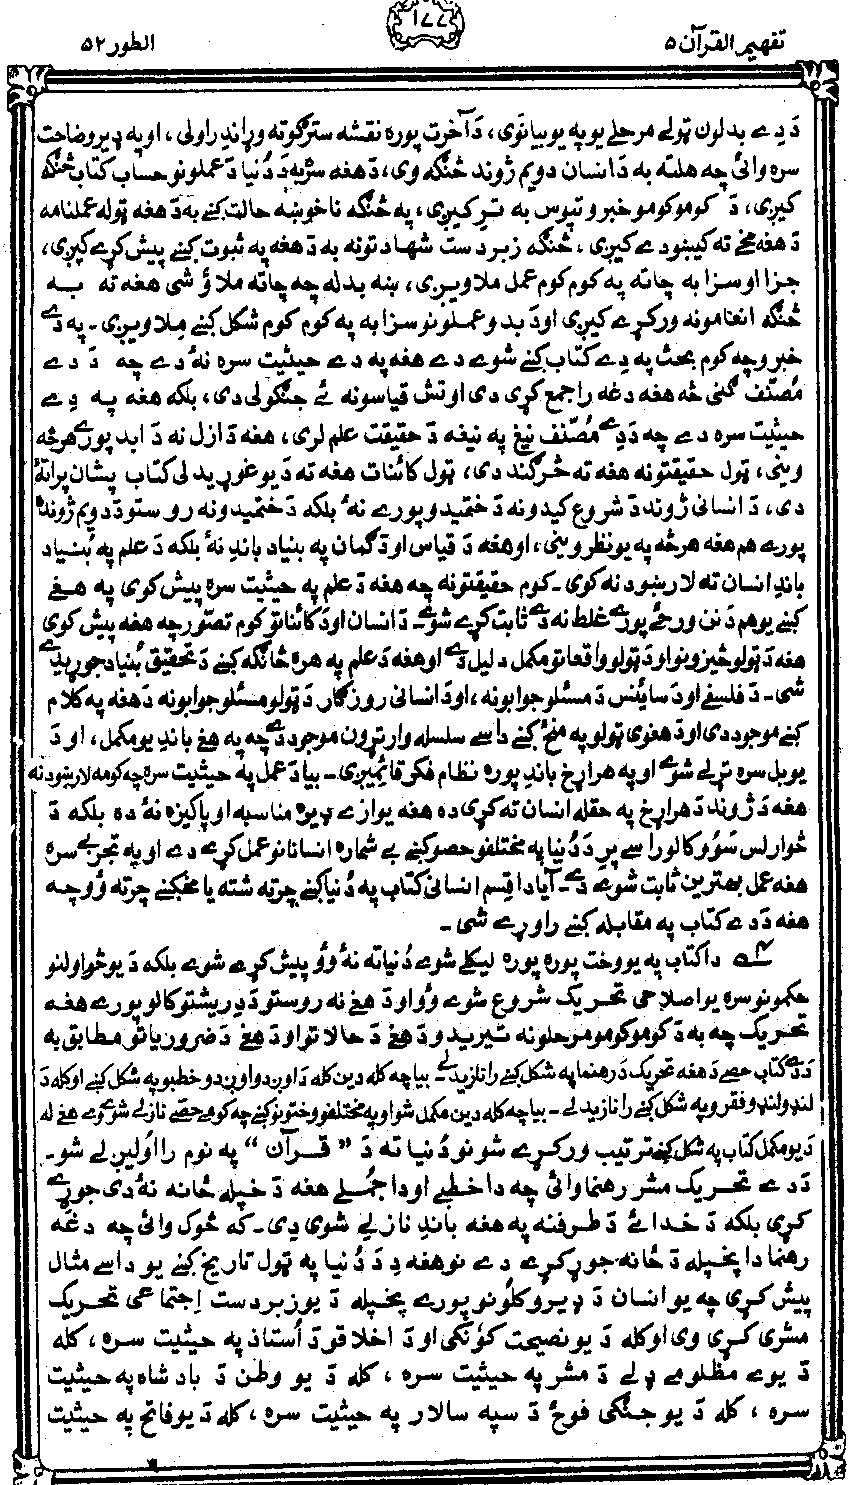 تفهیم القرآن ۵
۱۷۷
الطور ۵۲
دَ دِے بدلون ټولے مرحلے یو په یو بیانوی، دَ آخرت پوره نقشه سترګو ته وړاندِ راولی، او په ډیر وضاحت
سره وائی چه هلته به دَ انسان دویم ژوند څنګه وی، دَ هغه سړی به دَ دُنیا دَ عملونو حساب کتاب څنګه
کیږی، دَ کومو کومو خبرو تپوس به تر کیږی، په څنګه ناخوښه حالت کښے به دَ هغه ټوله عملنامه
دَ هغه مخے ته کیښودے کیږی، څنګه زبردست شهادتونه به دَ هغه په ثبوت کښے پیش کړے کیږی،
جزا او سزا به چاته په کوم کوم عمل ملاویږی، ښه بدله چه چاته ملاؤ شی هغه ته به
څنګه انعامونه ورکړے کیږی او دَ بدو عملونو سزا به په کوم کوم شکل کښے مِلاویږی ـ په دے
خبرو چه کوم بحث په دِے کتاب کښے شوے دے هغه په دے حیثیت سره نۀ دے چه دَ دے
مُصنّف ګنی څه هغه دغه را جمع کړی دی او تش قیاسونه ئے جنګولی دی، بلکه هغه په دِے
حیثیت سره دے چه دَ دِے مُصنّف نیغ په نیغه دَ حقیقت علم لری، هغه دَ ازل نه دَ ابد پورے هر څه
وینی، ټول حقیقتونه هغه ته څرګند دی، ټول کائنات هغه ته دَ یو غوړیدلی کتاب پشان پرانتۀ
دی، دَ انسانی ژوند دَ شروع کیدو نه دَ ختمیدو پورے نۀ بلکه دَ ختمیدو نه روستو دَ دویم ژوند
پورے هم هغه هر څه په یو نظر وینی، او هغه دَ قیاس او دَ ګمان په بنیاد باندِ نۀ بلکه دَ علم په بُنیاد
باندِ انسان ته لارښود نه کوی ـ کوم حقیقتونه چه هغه دَ علم په حیثیت سره پیش کوی په هغے
کښے یو هم دَ نن ورځے پورے غلط نه دے ثابت کړے شوے ـ دَ انسان او دَ کائناتو کوم تصوّر چه هغه پیش کوی
هغه دَ ټولو څیزونو او دَ ټولو واقعاتو مکمل دلیل دے او هغه دَ علم په هره څانګه کښے دَ تحقیق بُنیاد جوړیدے
شی ـ دَ فلسفے او دَ سائنس دَ مسئلو جوابونه، او دَ انسانی روزګار دَ ټولو مسئلو جوابونه دَ هغه په کلام
کښے موجود دی او دَ هغوی ټولو په منځ کښے داسے سلسله وار ترون موجود دے چه په هغے باندِ یو مکمل، او دَ
یو بل سره ترلے شوے او په هر اړخ باندِ پوره نظام فکر قائمیږی ـ بیا دَ عمل په حیثیت سره چه کومه لارښود نه
هغه دَ ژوند دَ هر اړخ په حقله انسان ته کړی ده هغه یوازے ډیره مناسبه او پاکیزه نۀ ده بلکه دَ
څوارلس سَوؤ کالو را سے پرِ دَ دُنیا په مختلفو حصو کښے بے شماره انسانانو عمل کړے دے او په تجربے سره
هغه عمل بهترین ثابت شوے دے ـ آیا دا قِسم انسانی کتاب په دُنیا کښے چرته شته یا مخکښے چرته وُو چه
هغه دَ دے کتاب په مقابله کښے راوړے شی ـ
دا کتاب په یو وخت پوره پوره لیکلے شوے دُنیا ته نۀ وُو پیش کړے شوے بلکه دَ یو څو اولنو
حکمونو سره یو اصلاحی تحریک شروع شوے وُو او دَ هغے نه روستو دَ درِیشتو کالو پورے هغه
تحریک چه به دَ کومو کومو مرحلونه تیریدو دَ هغے دَ حالاتو او دَ هغے دَ ضروریاتو مطابق به
دَ دے کتاب حصے دَ هغه تحریک دَ رهنما په شکل کښے را نازیدلے ـ بیا چه کله دین کله دَ اوږدو اوږدو خطبو په شکل کښے او کله دَ
لنډو لنډو فقرو په شکل کښے را نازیدلے ـ بیا چه کله دین مکمل شو او په مختلفو وختونو کښے چه کومے حِصّے نازلے شوے وے هغے له
دَ یو مکمل کتاب په شکل کښے ترتیب ورکړے شو نو دُنیا ته دَ "قرآن" په نوم را اولین لے شو ـ
دَ دے تحریک مشر رهنما وائی چه دا خطبے او دا جُملے هغه دَ خپله ځانه نۀ دی جوړے
کړی بلکه دَ خدائے دَ طرفنه په هغه باندِ نازلے شوی دِی ـ که څوک وائی چه دغه
رهنما دا پخپله دَ ځانه جوړ کړے دے نو هغه دِ دَ دُنیا په ټول تاریخ کښے یو داسے مثال
پیش کړی چه یو انسان دَ ډیرو کلُونو پورے پخپله دَ یو زبردست اِجتماعی تحریک
مشری کړی وی او کله دَ یو نصیحت کوُنکی او دَ اخلاقو دَ اُستاذ په حیثیت سره، کله
دَ یوے مظلومے ډلے دَ مشر په حیثیت سره، کله دَ یو وطن دَ بادشاه په حیثیت
سره، کله دَ یو جنګی فوځ دَ سپه سالار په حیثیت سره، کله دَ یو فاتح په حیثیت